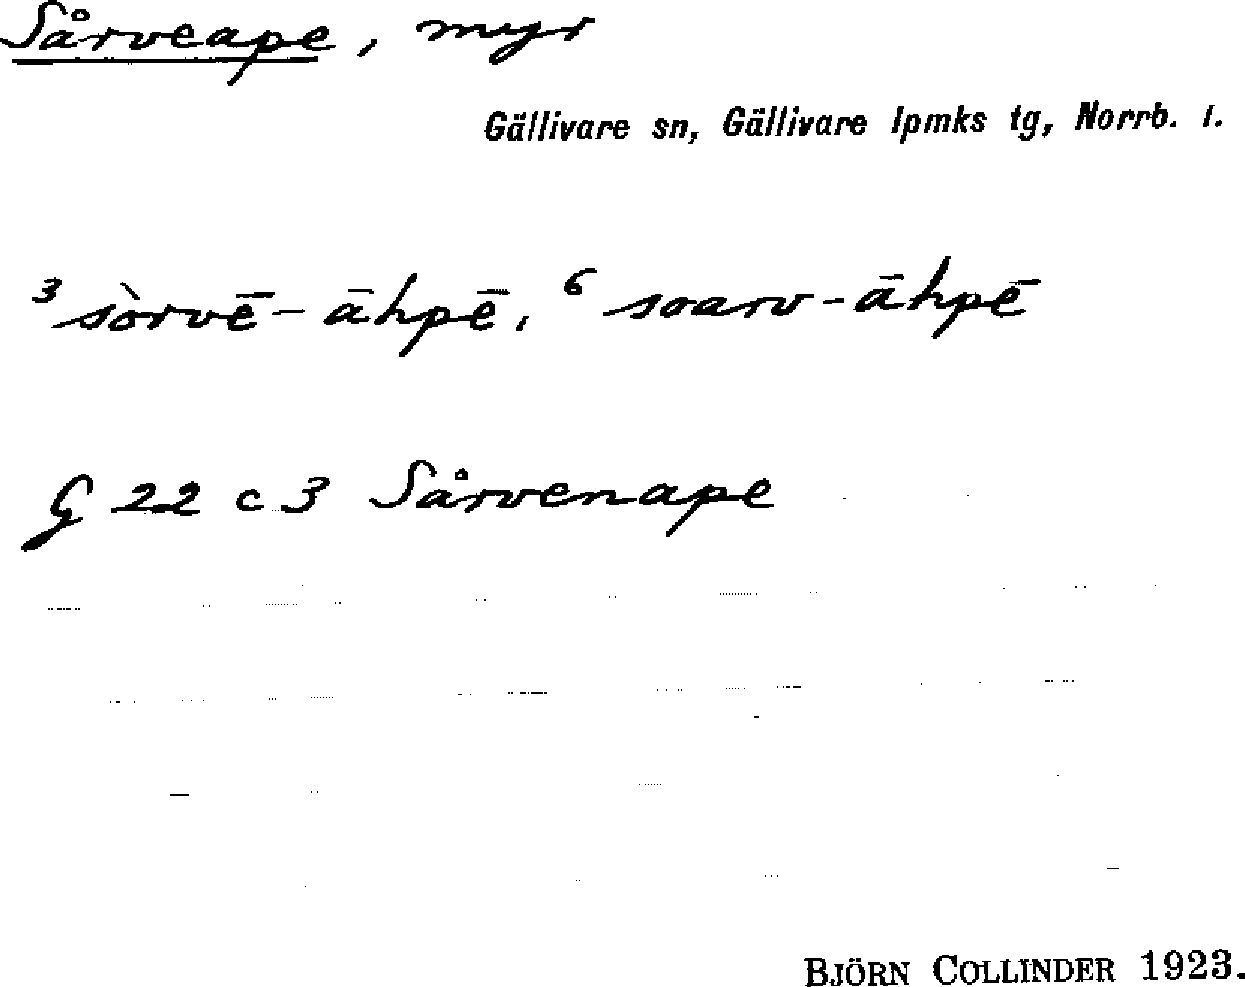 Sårveape, myr
Gällivare sn, Gällivare lpmks tg, Norrb. l.
³ sòrvē-āhpē, ⁶ soarv-āhpē
G 22 c 3 Sårvenape
BJÖRN COLLINDER 1923.